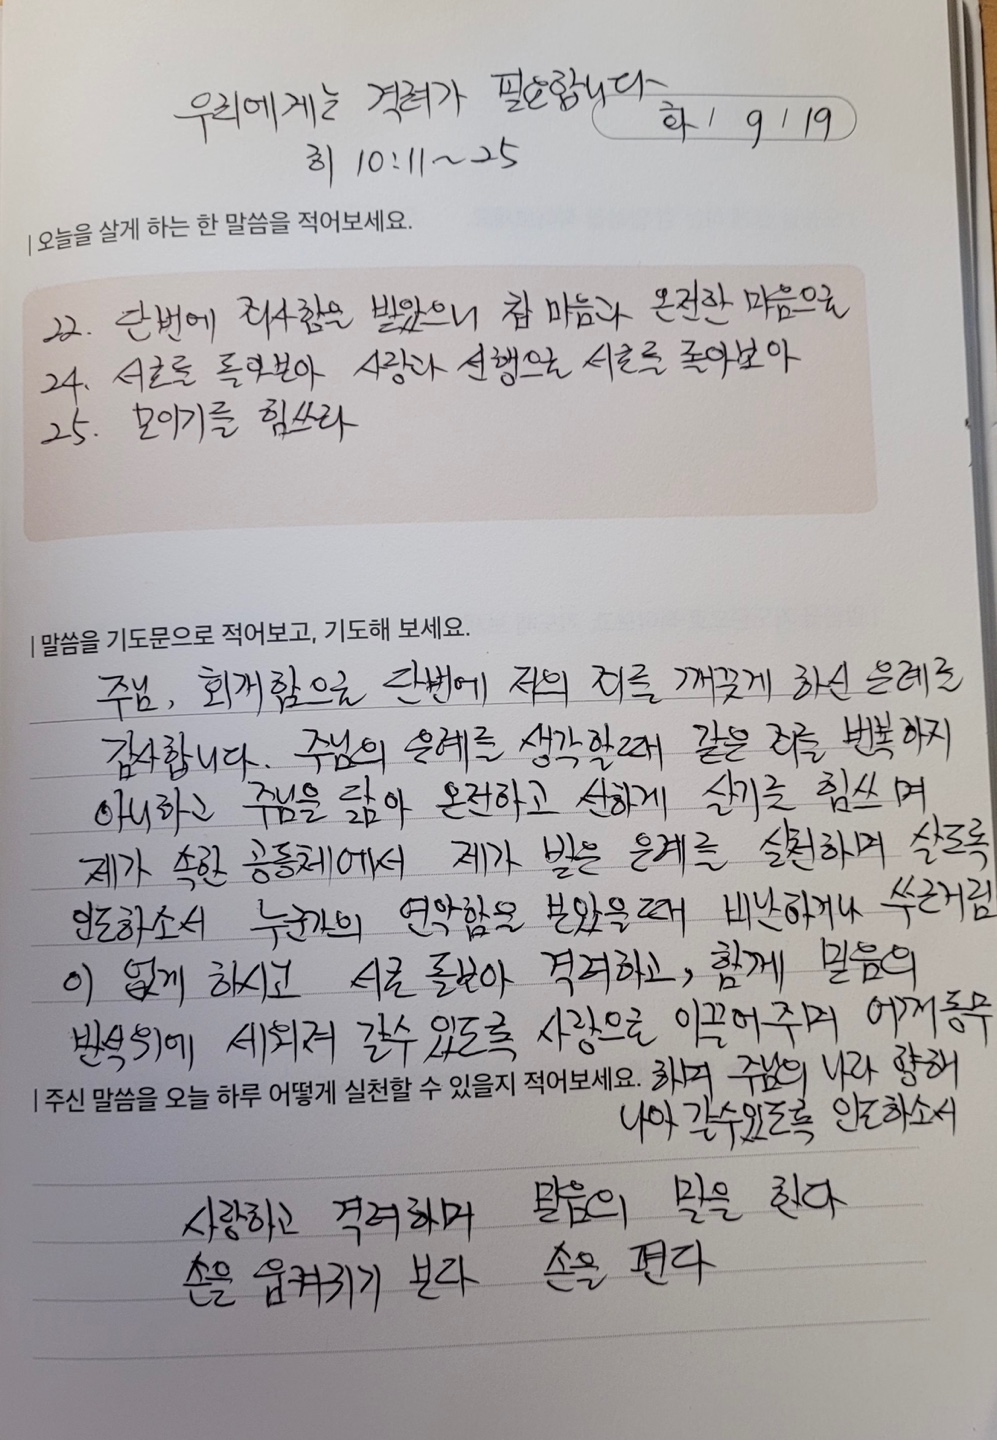 우리에게는 격려가 필요합니다
화 / 9 / 19
히 10:11~25
오늘을 살게 하는 한 말씀을 적어보세요.
22. 단번에 죄사함을 받았으니 참 마음과 온전한 마음으로
24. 서로를 돌아보아 사랑과 선행으로 서로를 돌아보아
25. 모이기를 힘쓰라
말씀을 기도문으로 적어보고, 기도해 보세요.
주님, 회개함으로 단번에 저의 죄를 깨끗게 하신 은혜를
감사합니다. 주님의 은혜를 생각할때 같은 죄를 번복하지
아니하고 주님을 닮아 온전하고 선하게 살기를 힘쓰며
제가 속한 공동체에서 제가 받은 은혜를 실천하며 살도록
인도하소서 누군가의 연약함을 보았을때 비난하거나 쑥근거림
이 없게 하시고 서로 돌보아 격려하고, 함께 믿음의
반석위에 세워져 갈수 있도록 사랑으로 이끌어주며 어깨동무
하며 주님의 나라 향해
나아 갈수있도록 인도하소서
주신 말씀을 오늘 하루 어떻게 실천할 수 있을지 적어보세요.
사랑하고 격려하며 믿음의 말을 한다
손을 움켜쥐기 보다 손을 편다